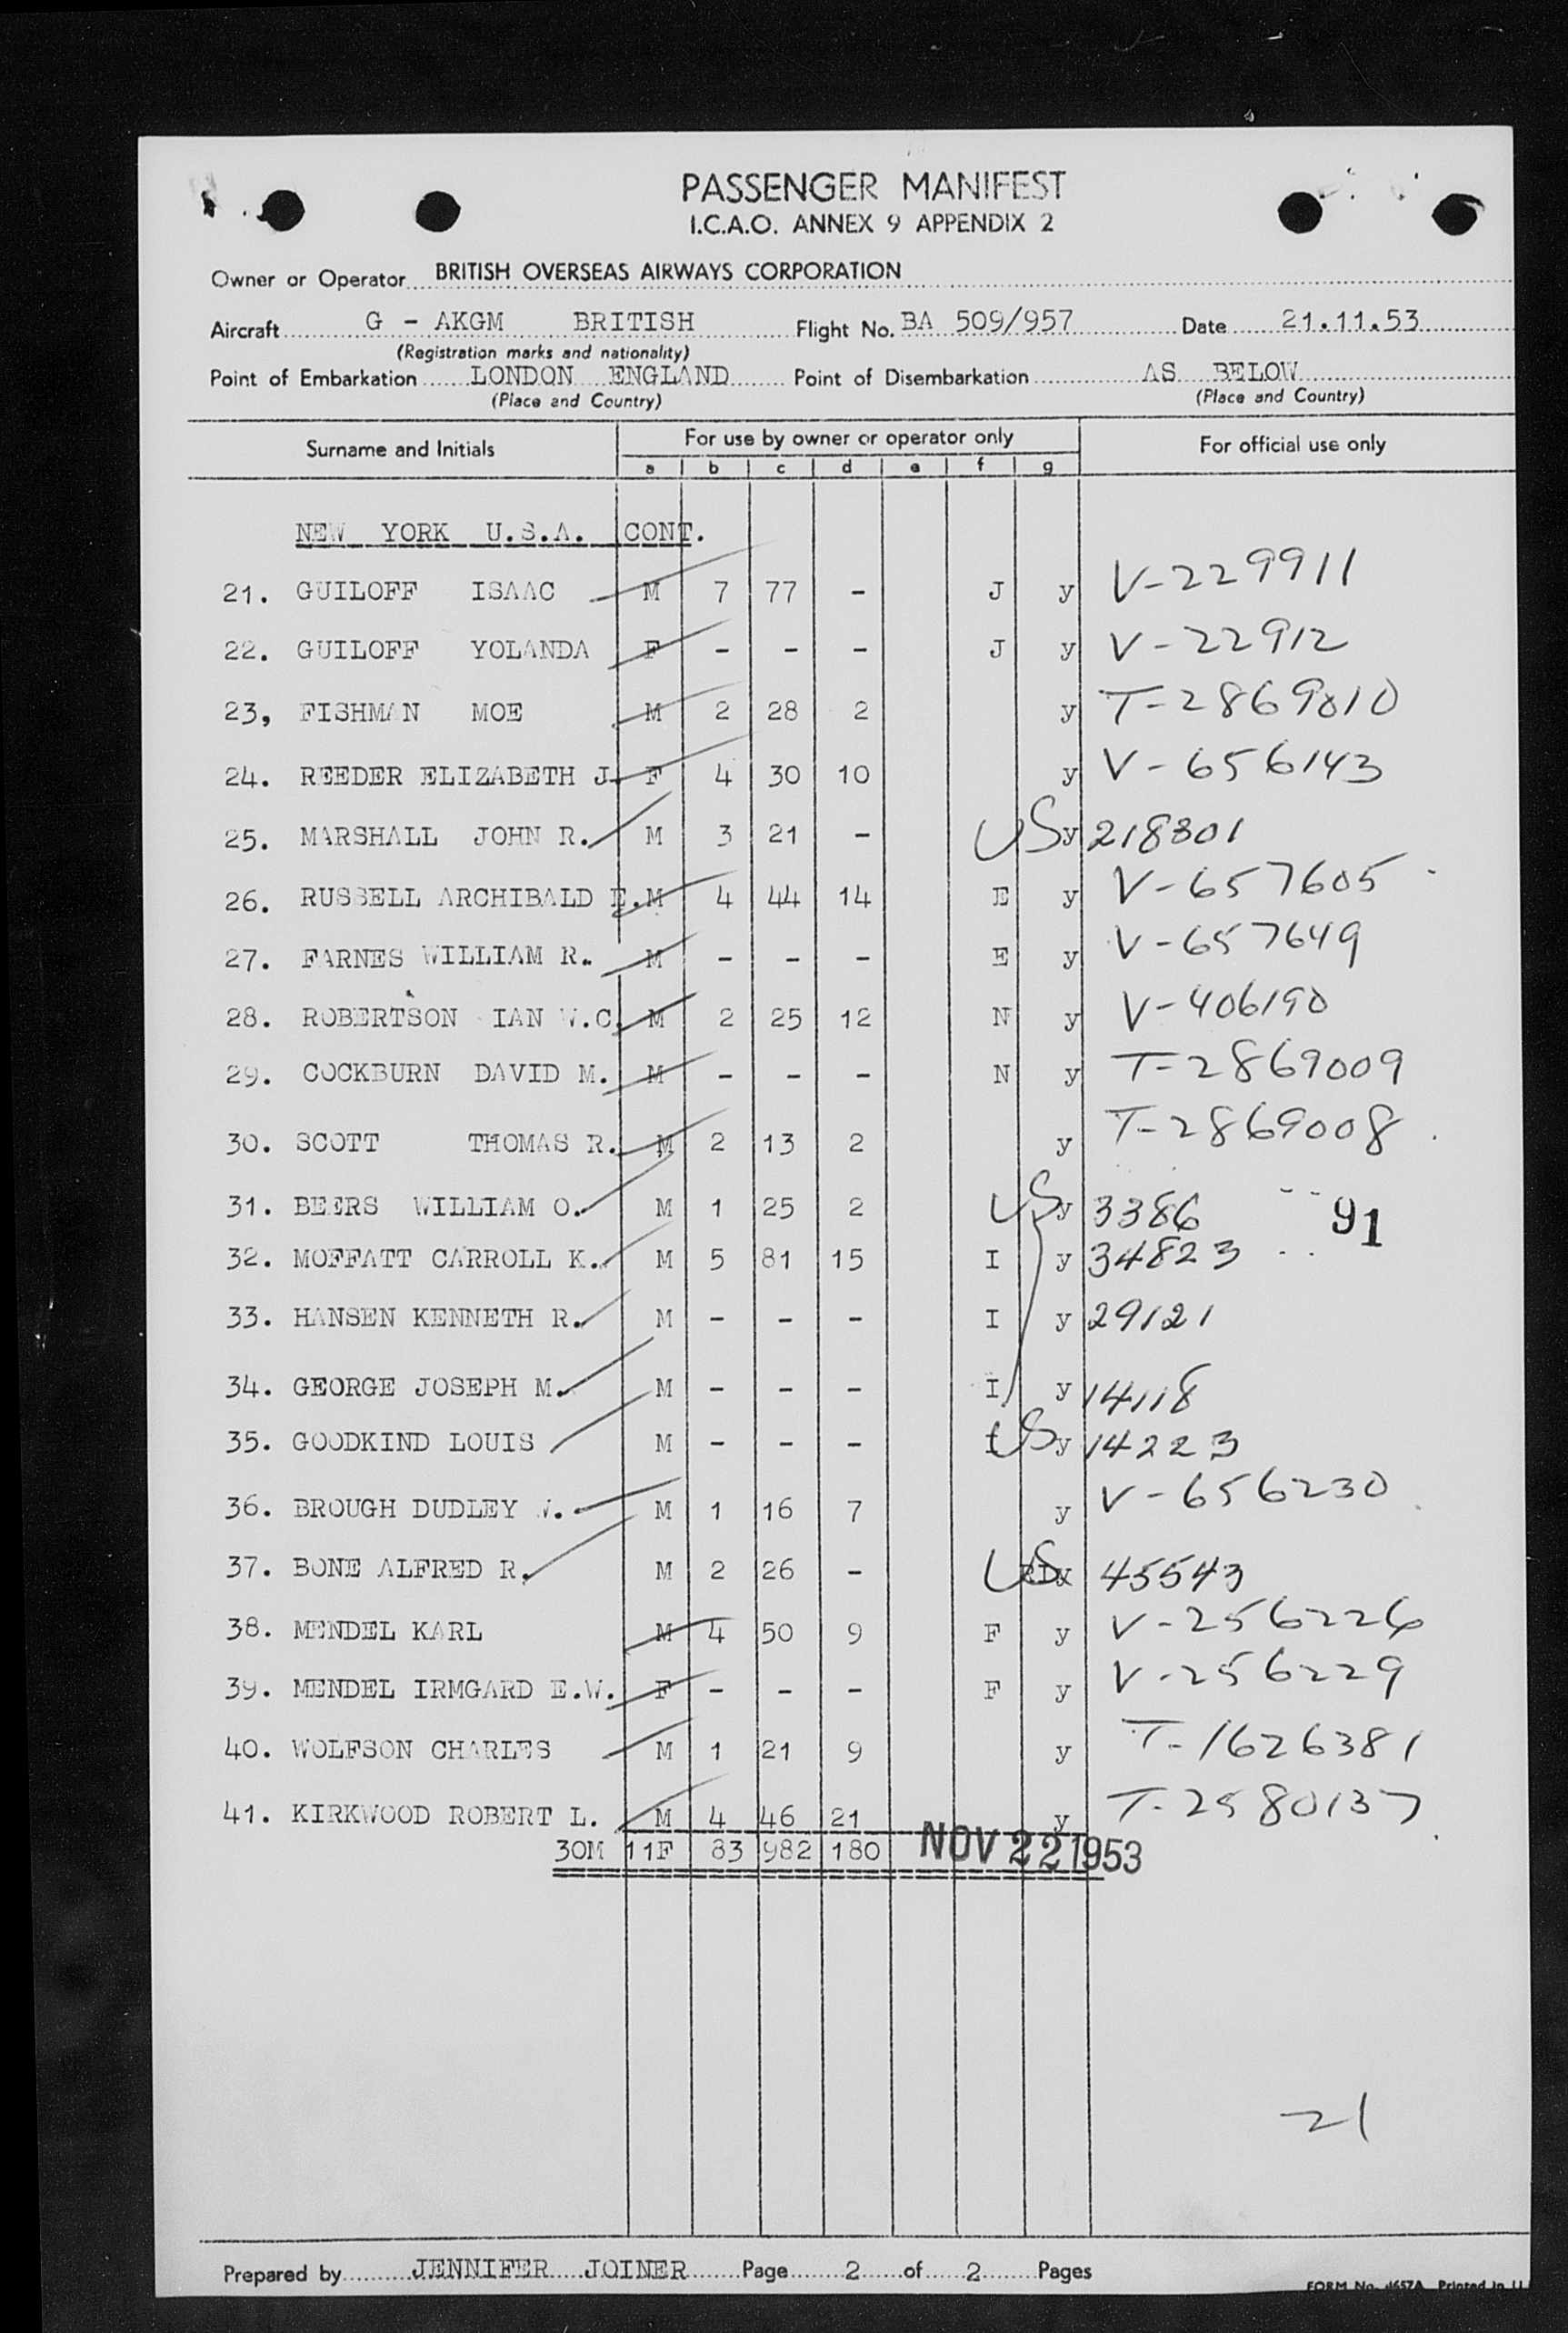 PASSENGER MANIFEST
I.C.A.O. ANNEX 9 APPENDIX 2
Owner or Operator BRITISH OVERSEAS AIRWAYS CORPORATION
Aircraft G - AKGM BRITISH Flight No. BA 509/957 Date 21.11.53
(Registration marks and nationality)
Point of Embarkation LONDON ENGLAND Point of Disembarkation AS BELOW
(Place and Country) (Place and Country)
Surname and Initials For use by owner or operator only For official use only
a b c d e f g
NEW YORK U.S.A. CONT.
21. GUILOFF ISAAC M 7 77 - J y V-229911
22. GUILOFF YOLANDA F - - - J y V-22912
23, FISHMAN MOE M 2 28 2 y T-2869010
24. REEDER ELIZABETH J. F 4 30 10 y V-656143
25. MARSHALL JOHN R. M 3 21 - US y 218301
26. RUSSELL ARCHIBALD E. M 4 44 14 E y V-657605
27. FARNES WILLIAM R. M - - - E y V-657649
28. ROBERTSON IAN W.C. M 2 25 12 N y V-406190
29. COCKBURN DAVID M. M - - - N y T-2869009
30. SCOTT THOMAS R. M 2 13 2 y T-2869008
31. BEERS WILLIAM O. M 1 25 2 US y 3386
91
32. MOFFATT CARROLL K. M 5 81 15 I y 34823
33. HANSEN KENNETH R. M - - - I y 29121
34. GEORGE JOSEPH M. M - - - I y 14118
35. GOODKIND LOUIS M - - - US y 14223
36. BROUGH DUDLEY W. M 1 16 7 y V-656230
37. BONE ALFRED R. M 2 26 - US 45543
38. MENDEL KARL M 4 50 9 F y V-256226
39. MENDEL IRMGARD E.W. F - - - F y V-256229
40. WOLFSON CHARLES M 1 21 9 y T-1626381
41. KIRKWOOD ROBERT L. M 4 46 21 y T-2580137
30M 11F 83 982 180 NOV 22 1953
21
Prepared by JENNIFER JOINER Page 2 of 2 Pages
FORM No. Printed in U